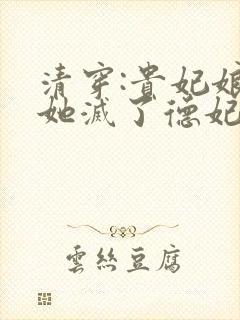 清穿:貴妃娘
她滅了德妃
雲絲豆腐